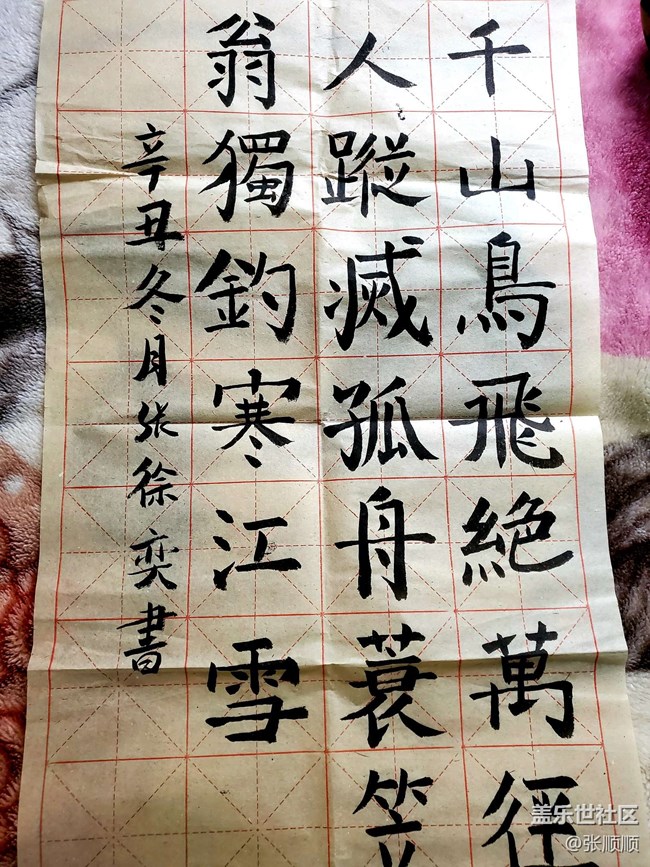 千山鳥飛絶萬徑
人蹤滅孤舟蓑笠
翁獨釣寒江雪
辛丑冬月張徐奕書
盖乐世社区
@张顺顺